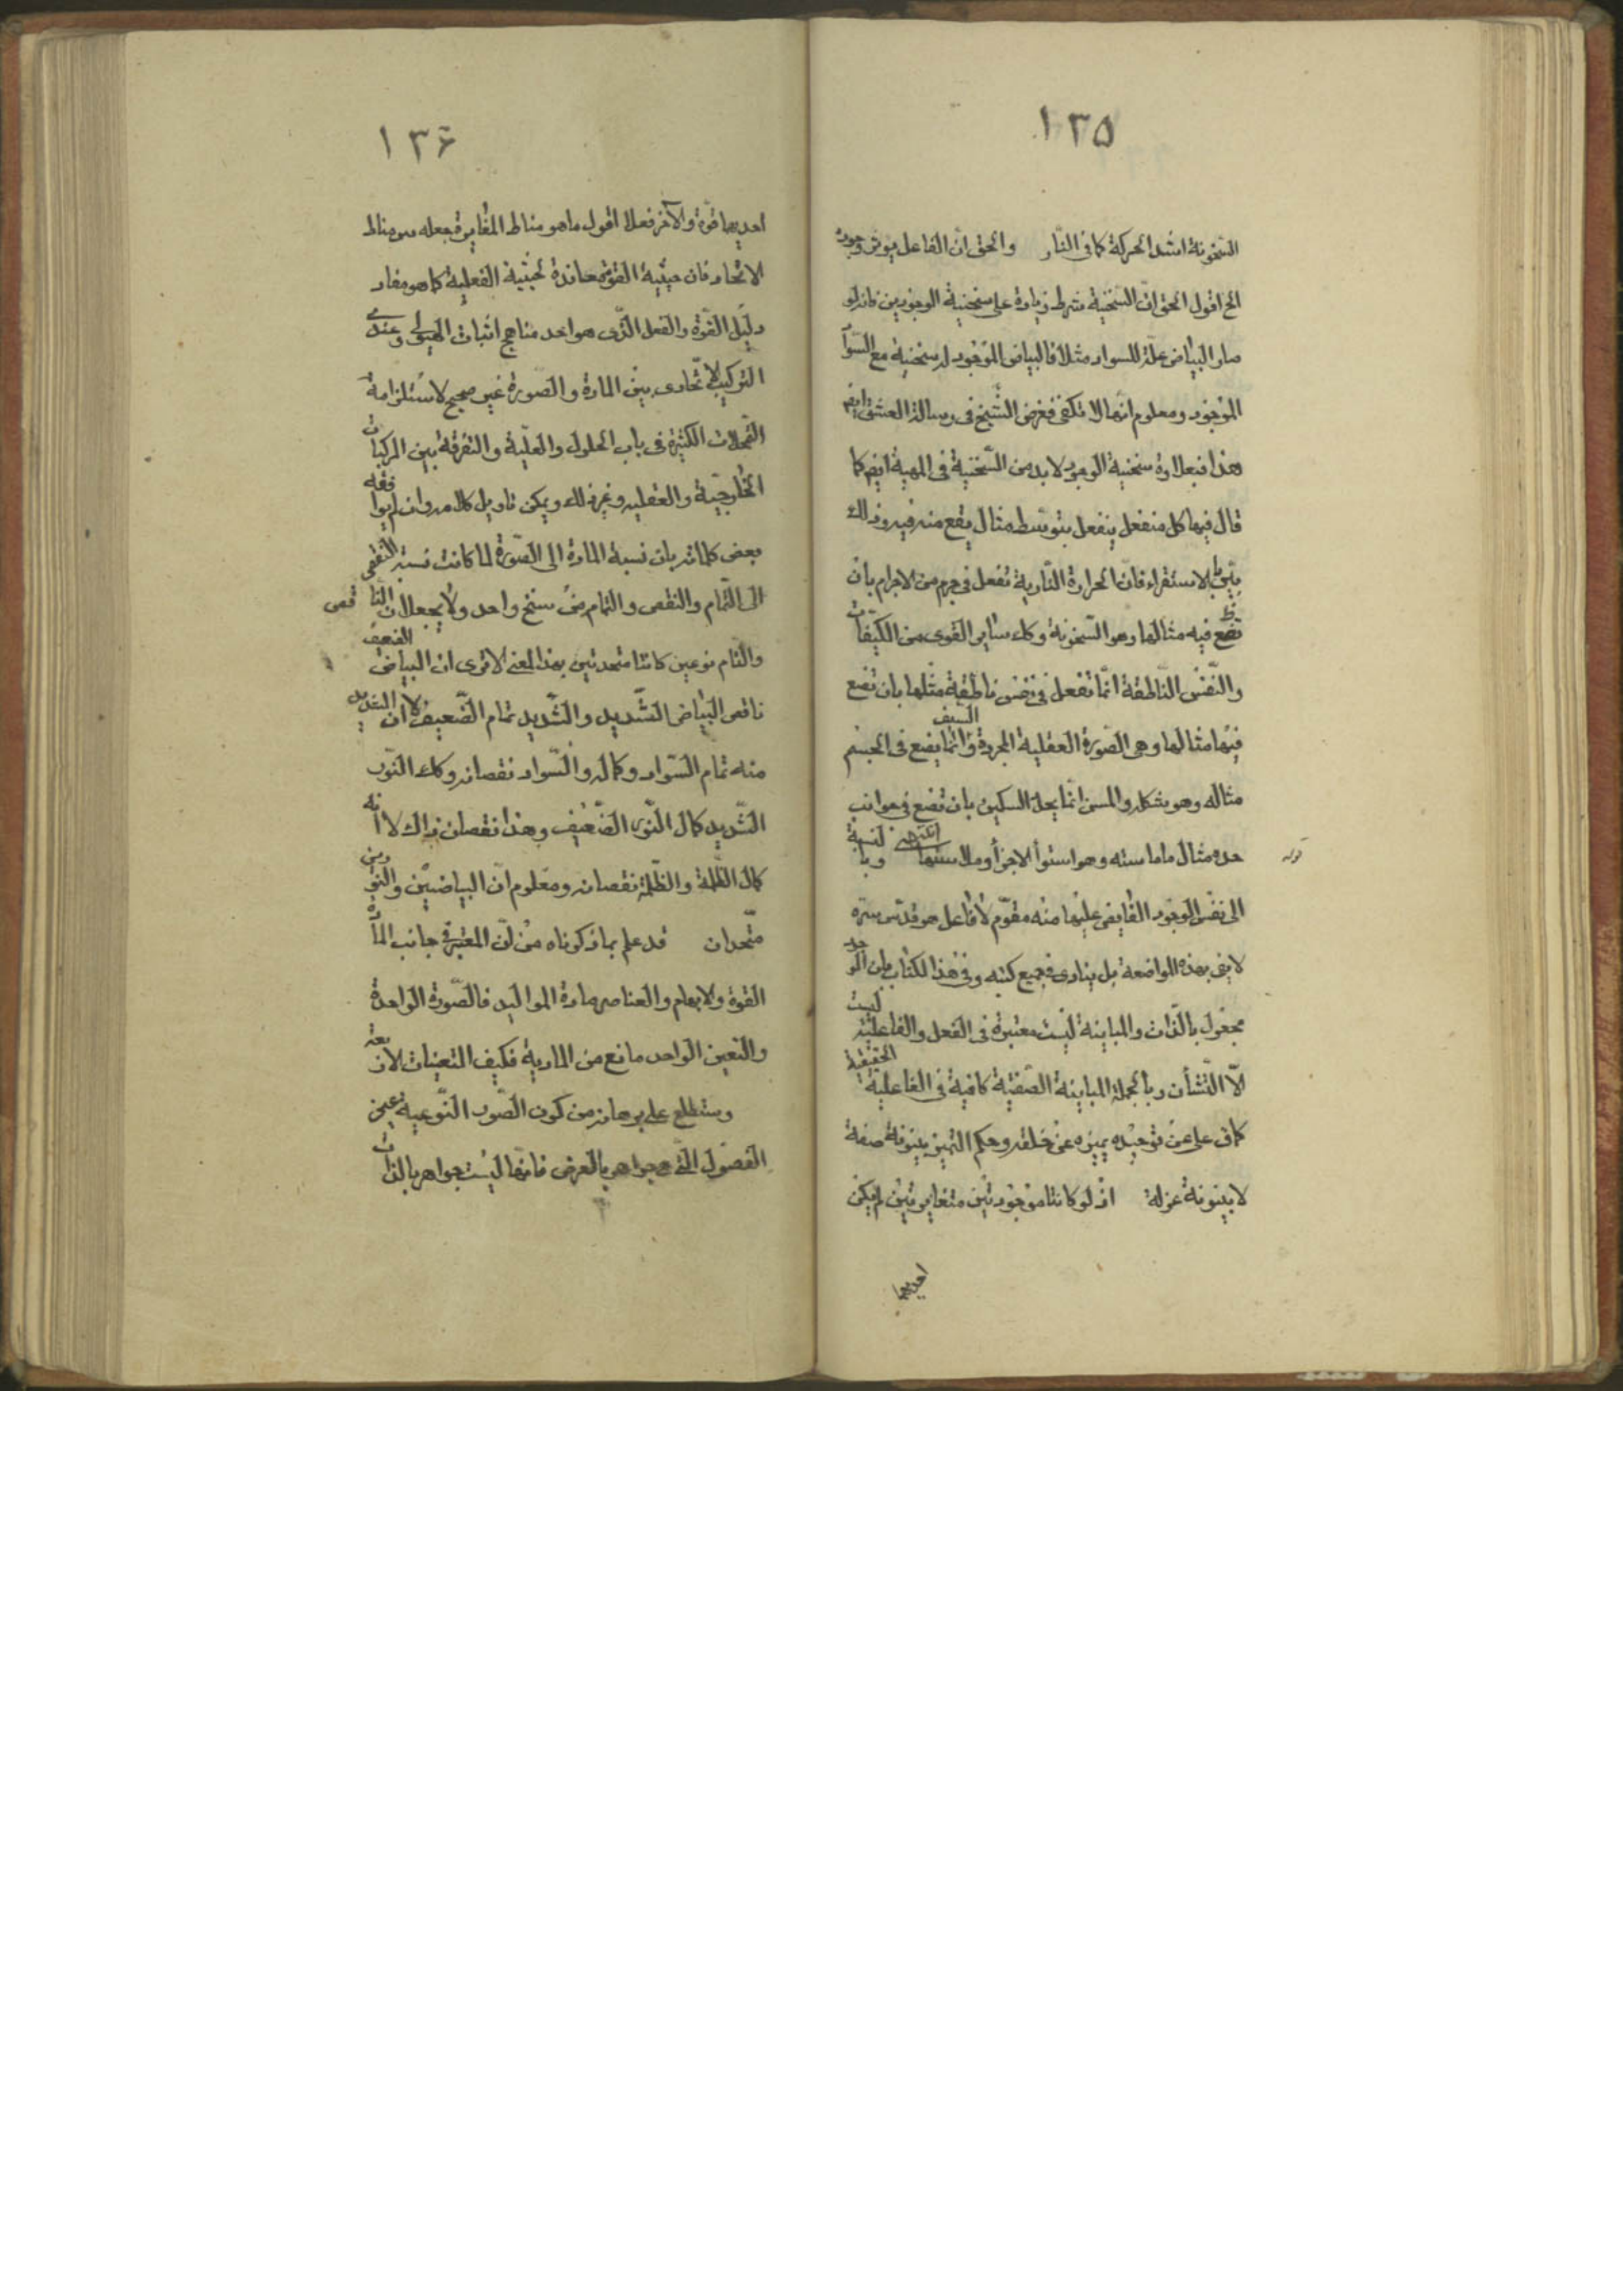 ١٣٥
السّخونة اشد الحركة كما فى النّار والحق انّ الفاعل يوثر وجوده
الخ اقول الحق انّ السّنخية شرط زيادة على سنخية الوجودين فانه لو
صار البياض علّة للسواد مثلا فالبياض الموجود له سنخية مع السّواد
الموجود ومعلوم انّها لا تكفى فغرض الشّيخ فى رسالة العشق ايضا
هذا فبعلاوة سنخية الوجود لابد من السّنخية فى المهية ايضا كما
قال فيها كل منفعل ينفعل بتوسّط مثال يقع منه فيه وذلك
بيّن بالاستقراء فانّ الحرارة النّارية تفعل فى جرم من الاجرام بان
تضع فيه مثالها وهو السّخونة وكك سائر القوى من الكيفيّات
والنّفس النّاطقة انّما تفعل فى نفس ناطقة مثلها بان تضع
فيها مثالها وهى الصّورة العقلية المجردة والسيف انّما يضع فى الجسم
مثاله وهو شكله والمسن انّما يحدّ السكين بان تضع فى جوانب
حده مثال ماماسته وهو استوأ الاجزأ وملاستها انتهى وبالنسبة
قوله
الى نفس الوجود الفايض عليها منه مقوّم لا فاعل هو قدّس سرّه
لا يفى بهذه المواضعة بل ينادى فى جميع كتبه وفى هذا الكتاب بان الوجود
مجعول بالذّات والمباينة ليست معتبرة فى الفعل والفاعلية ليست
الاّ التّشأن وبالجملة المباينة الصّفتية كافية فى الفاعلية الحقيقية
كما قال على عن توحيده يميزه عن خلقه وحكم التميز بينونة صفة
لا بينونة عزلة اذ لو كانتا موجودتين متغايرتين لم يكن
احديهما
١٣۶
احديهما قوّة والآخر فعلا اقول ما هو مناط المغايرة جعله مناط
الاتّحاد فان حيثية القوة معاندة لحيثية الفعلية كما هو مفاد
دليل القوّة والفعل الذّى هو احد مناهج اثبات الهيولى وعندى
التركيب الاتّحادى بين المادة والصّورة غير صحيح لاستلزامه
التمحلات الكثيرة فى باب الحلول والعلّية والتفرقة بين المركبات
الخارجيّة والعقلية وغير ذلك ويمكن تاويل كلامه وان لم يوافقه
بعض كلماته بان نسبة المادة الى الصّورة لما كانت نسبة النقص
الى التّمام والنقص والتمام من سنخ واحد ولا يجعلان الناقص
والتام نوعين كانتا متحدتين بهذا المعنى الا ترى ان البياض الضعيف
ناقص البياض الشّديد والشّديد تمام الضّعيف لا ان الشديد
منه تمام السّواد وكماله والسّواد نقصانه وكك النّور
الشّديد كمال النّور الضّعيف وهذا نقصان ذاك لا انه
كمال الظّلمة والظّلمة نقصانه ومعلوم انّ البياضيّن والنورين
متّحدان قد علم بما ذكرناه من انّ المعتبر فى جانب المادّة
القوة والابهام والعناصر مادة المواليد فالصّورة الواحدة
والتعين الواحد مانع من المادية فكيف التعينات الاربعة
وستطلع على برهانه من كون الصّور النّوعية عين
الفصول التّى هى جواهر بالعرض فانّها ليست جواهر بالذّات